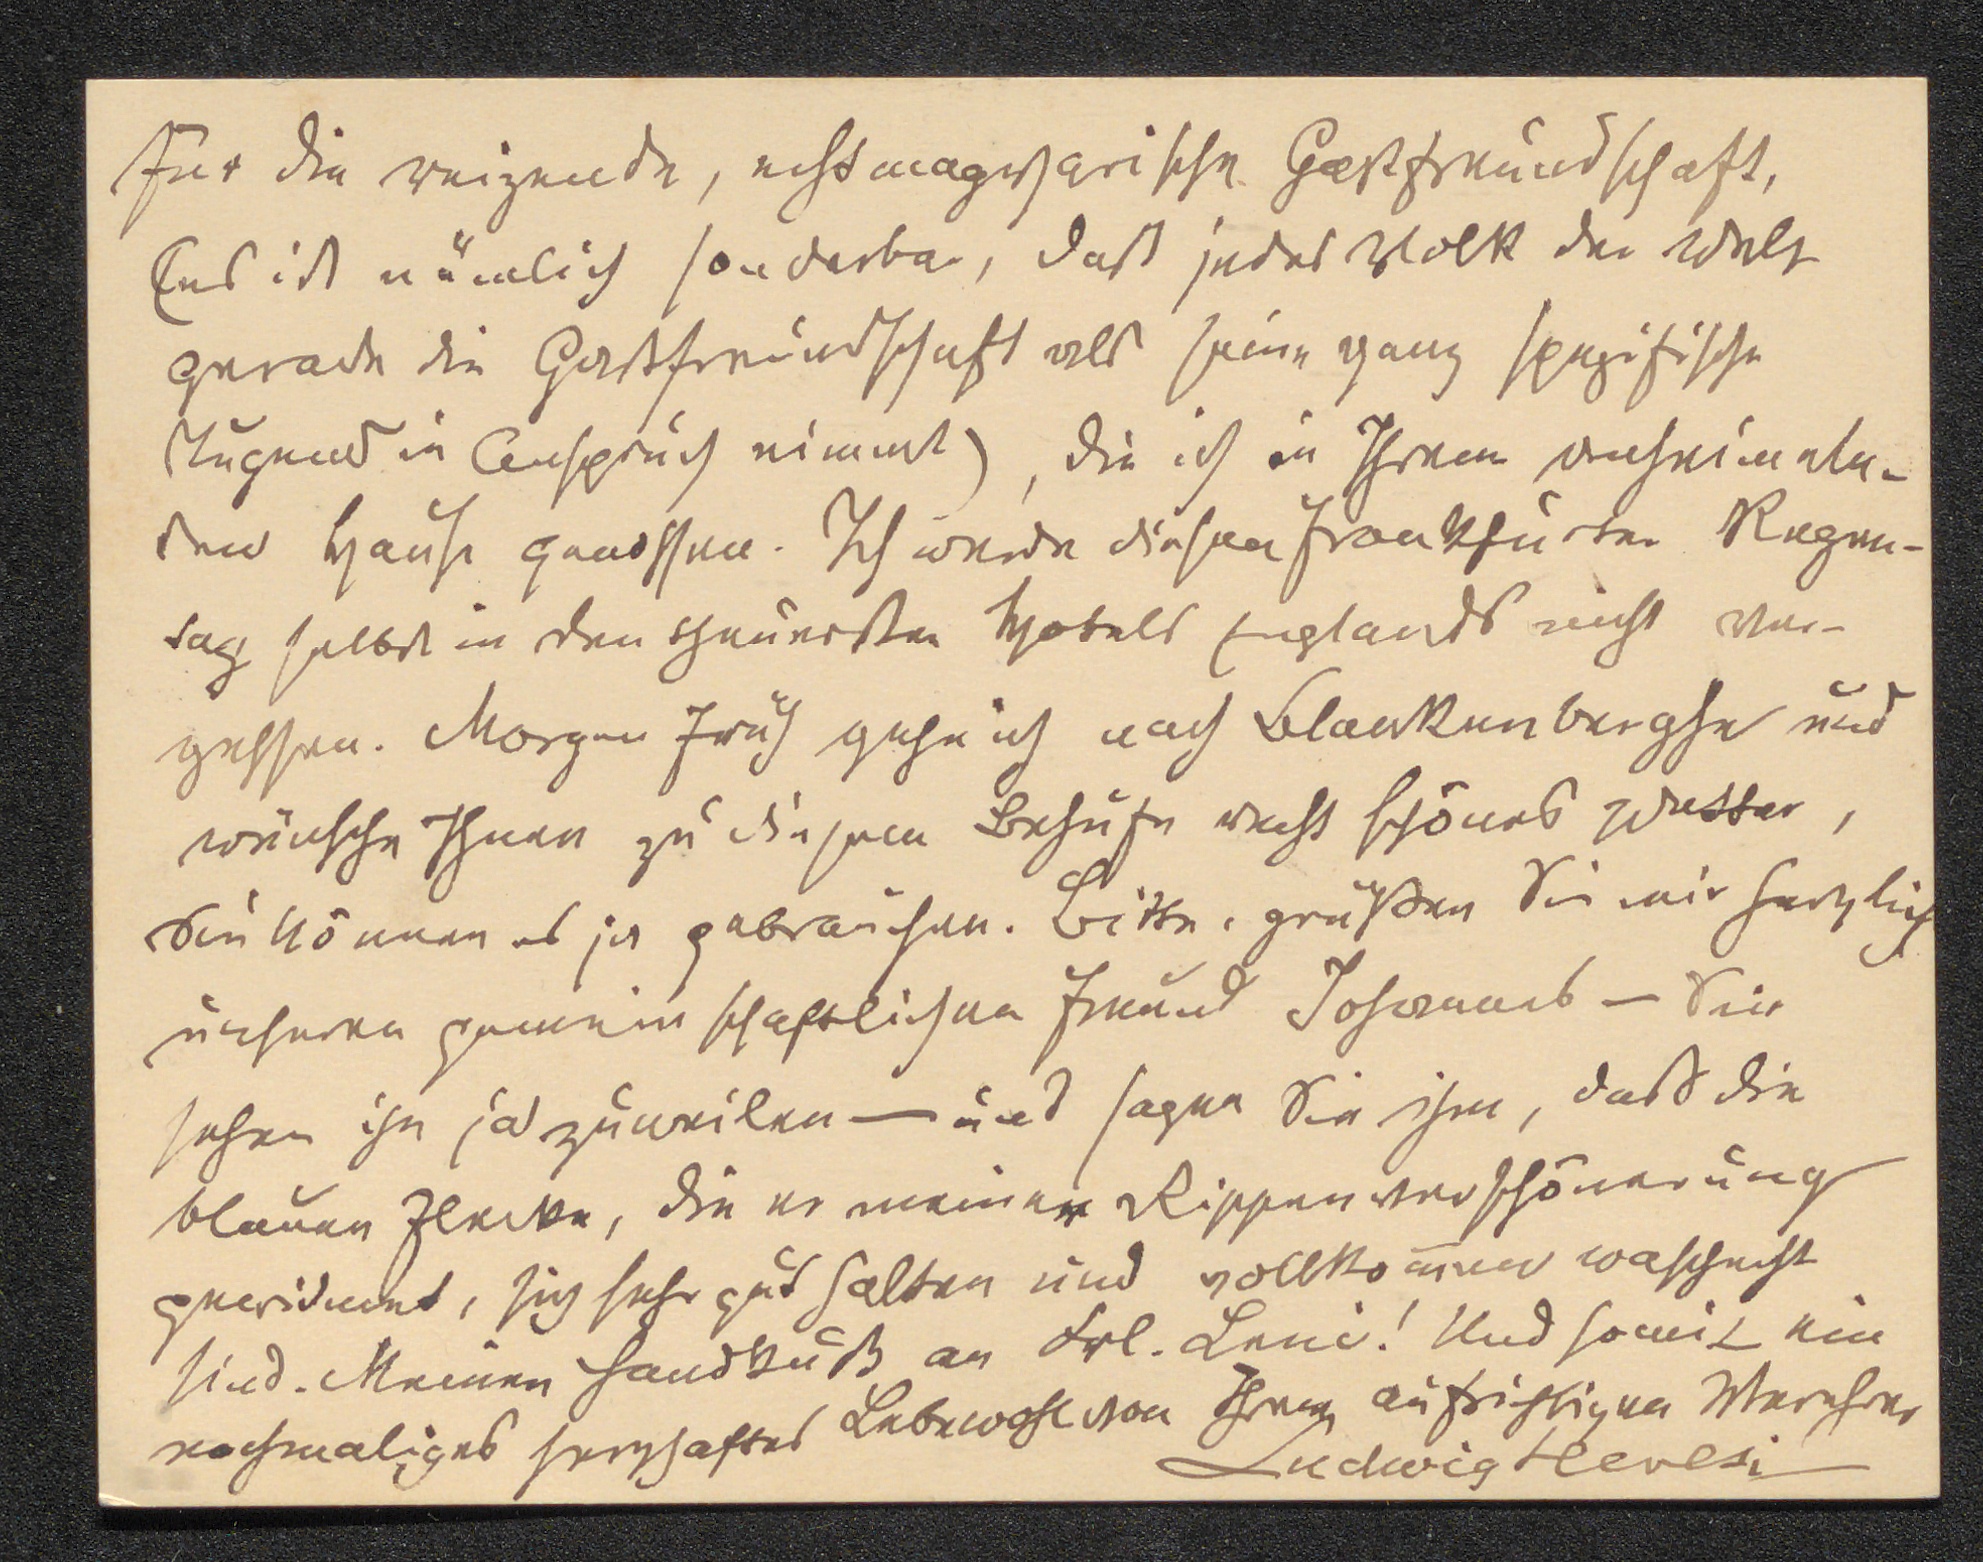 für die reizende, echt magyarische Gastfreundschaft,
(es ist nämlich sonderbar, daß jedes Volk der Welt
gerade die Gastfreundschaft als seine ganz spezifische
Tugend in Anspruch nimmt), die ich in Ihrem anheimeln-
den Hause genossen. Ich werde diesen Frankfurter Regen-
tag selbst in den theuersten Hotels Englands nicht ver-
gessen. Morgen früh gehe ich nach Blankenberghe und
wünsche Ihnen zu diesem Behufe recht schönes Wetter,
Sie können es ja gebrauchen. Bitte, grüßen Sie mir herzlich
unseren gemeinschaftlichen Freund Johannes – Sie
sehen ihn ja zuweilen – und sagen Sie ihm, daß die
blauen Flecke, die er meiner Rippenverschönerung
gewidmet, sich sehr gut halten und vollkom̅en waschecht
sind. Meinen Handkuß an Frl. Leni! Und somit ein
nochmaliges herzhaftes Lebewohl von Ihrem aufrichtigen Verehrer
Ludwig Hevesi